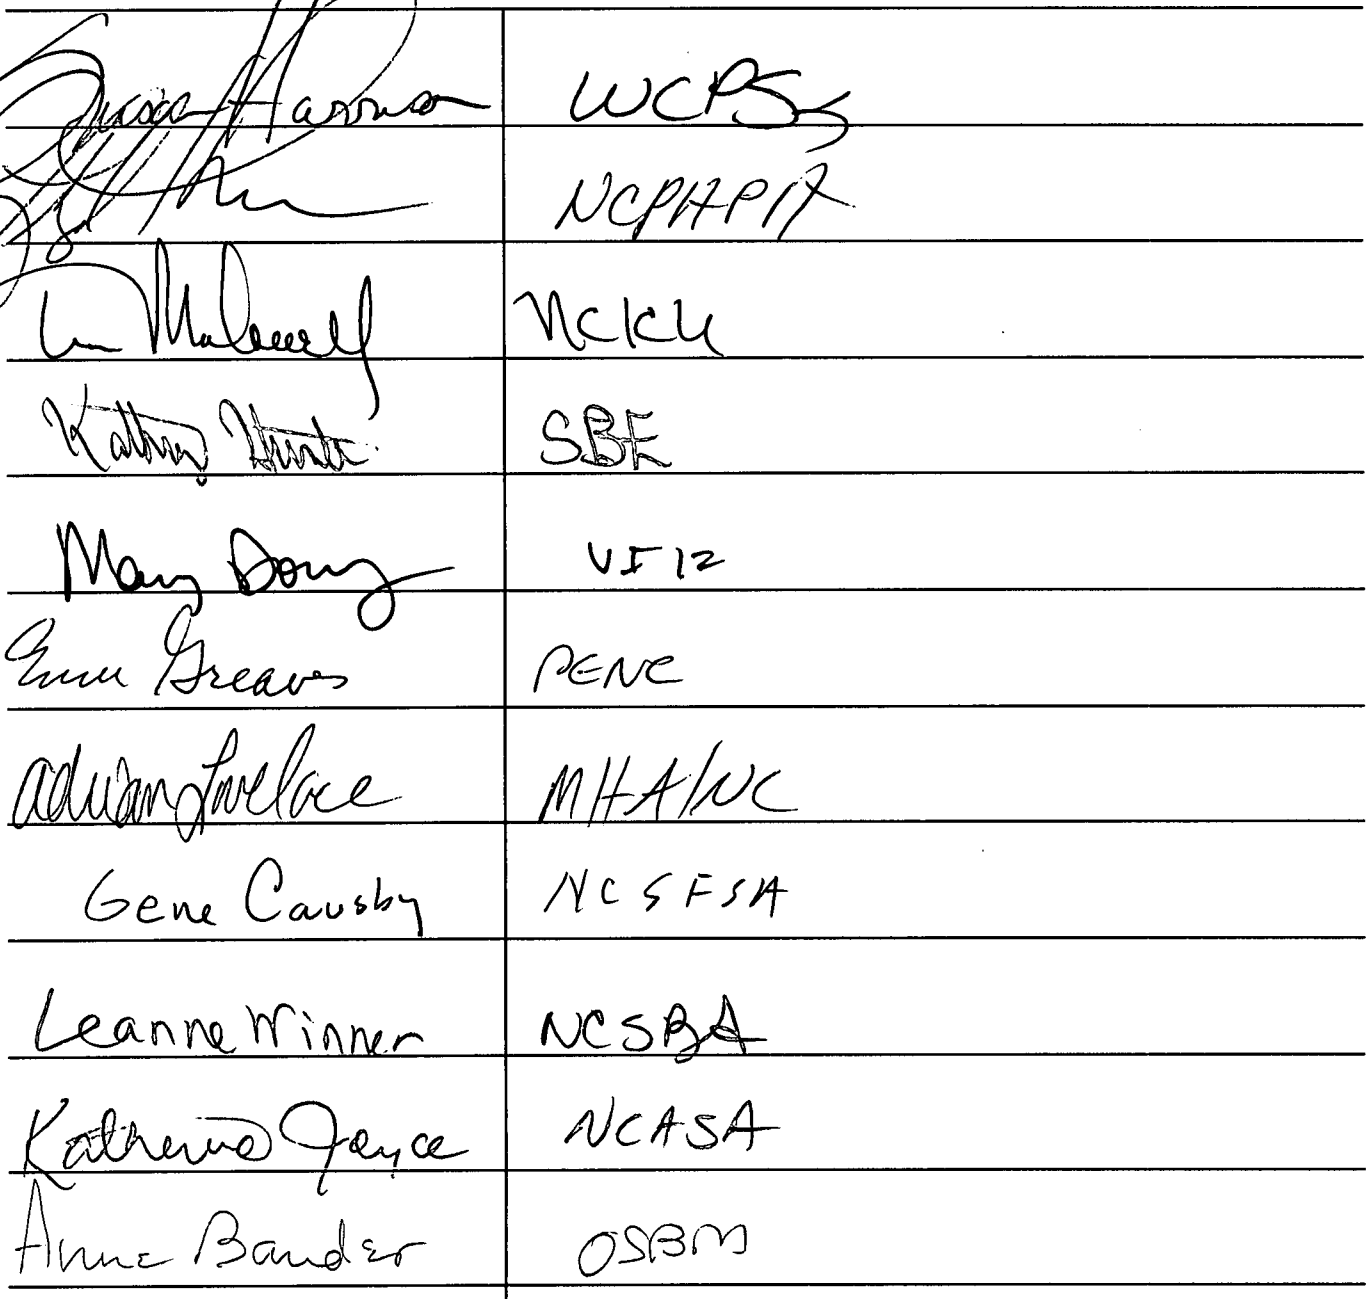 Susan Harrison WCPSS
NCPAPA
Mulwell NCICU
SBE
Mary VIF12
Greaves PENC
Adrian Lovelace MHA/NC
Gene Causby NCSFSA
Leanne Winner NCSBA
Katherine Joyce NCASA
Anne Bander OSBM